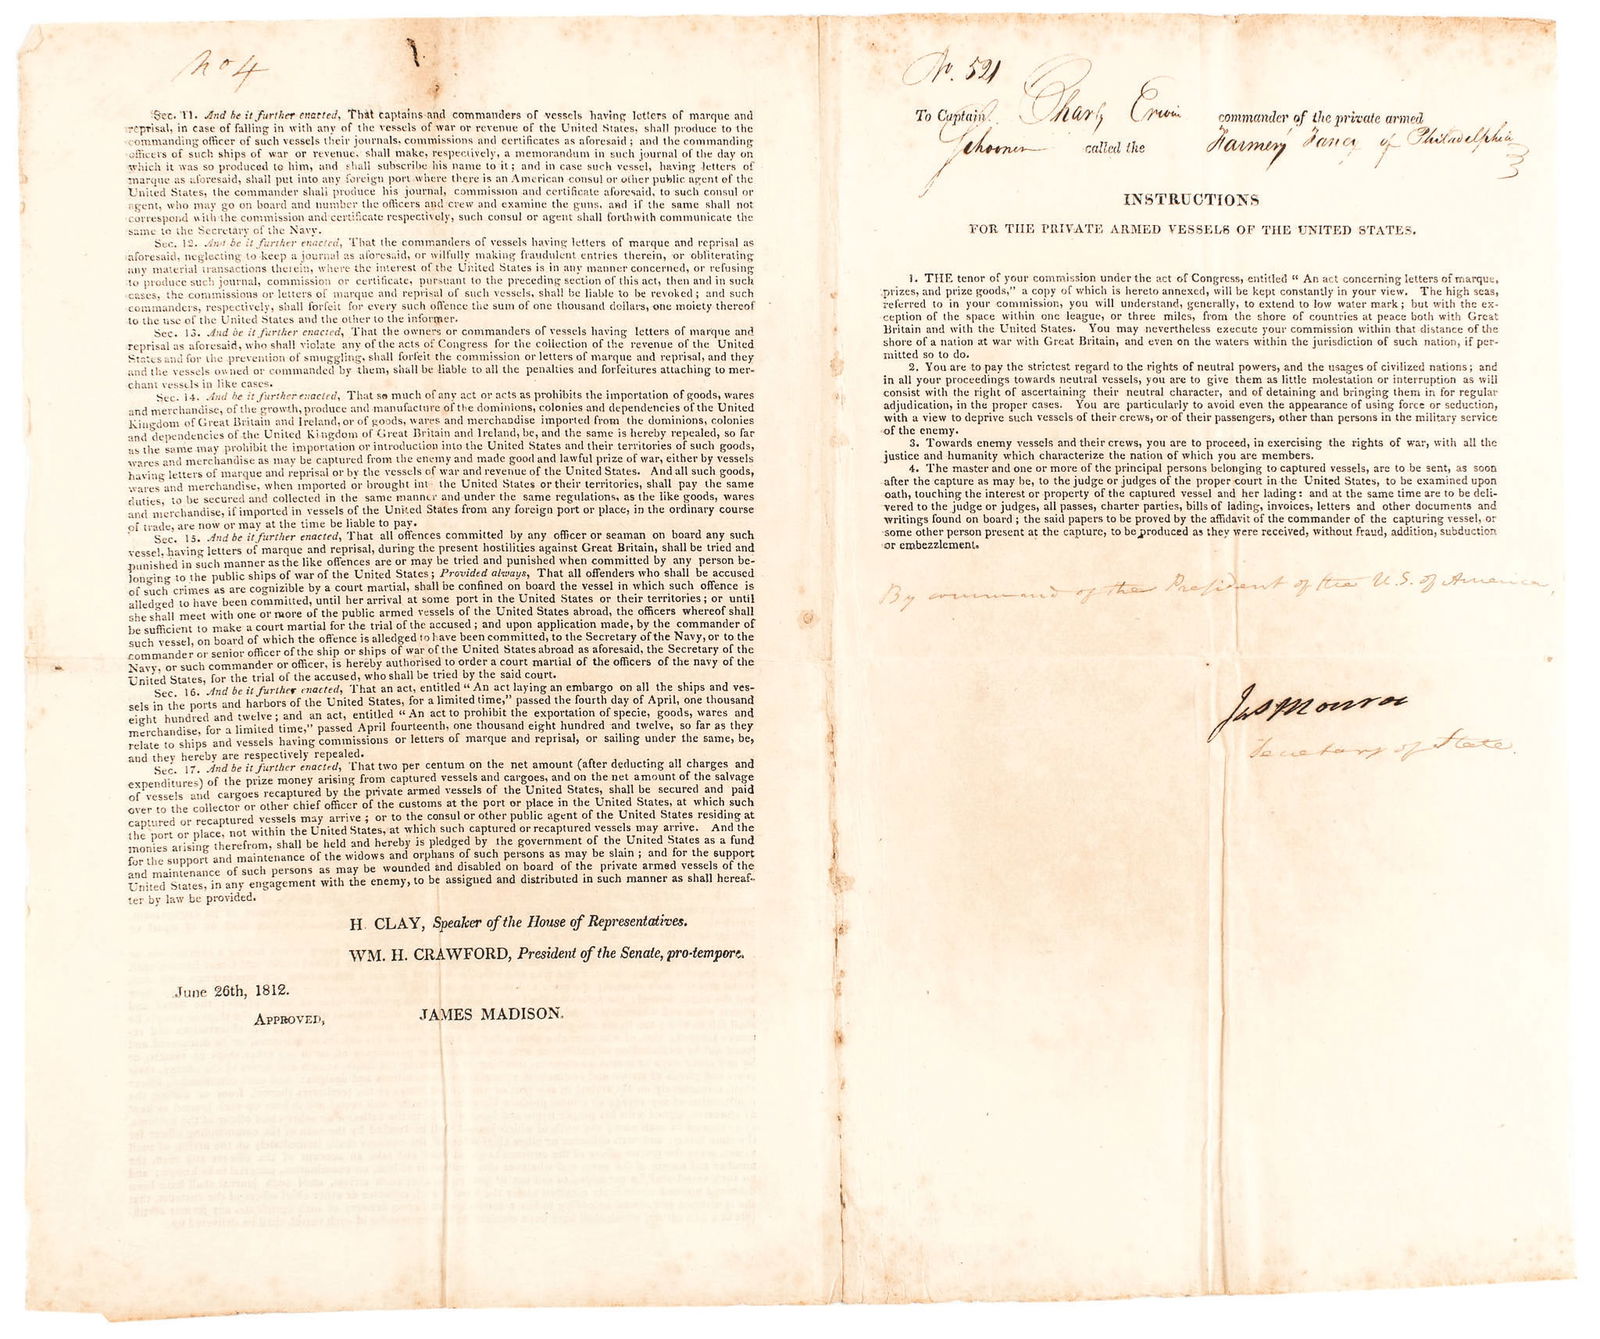 No 4
Sec. 11. And be it further enacted, That captains and commanders of vessels having letters of marque and
reprisal, in case of falling in with any of the vessels of war or revenue of the United States, shall produce to the
commanding officer of such vessels their journals, commissions and certificates as aforesaid; and the commanding
officers of such ships of war or revenue, shall make, respectively, a memorandum in such journal of the day on
which it was so produced to him, and shall subscribe his name to it; and in case such vessel, having letters of
marque as aforesaid, shall put into any foreign port where there is an American consul or other public agent of the
United States, the commander shall produce his journal, commission and certificate aforesaid, to such consul or
agent, who may go on board and number the officers and crew and examine the guns, and if the same shall not
correspond with the commission and certificate respectively, such consul or agent shall forthwith communicate the
same to the Secretary of the Navy.
Sec. 12. And be it further enacted, That the commanders of vessels having letters of marque and reprisal as
aforesaid, neglecting to keep a journal as aforesaid, or wilfully making fraudulent entries therein, or obliterating
any material transactions therein, where the interest of the United States is in any manner concerned, or refusing
to produce such journal, commission or certificate, pursuant to the preceding section of this act, then and in such
cases, the commissions or letters of marque and reprisal of such vessels, shall be liable to be revoked; and such
commanders, respectively, shall forfeit for every such offence the sum of one thousand dollars, one moiety thereof
to the use of the United States and the other to the informer.
Sec. 13. And be it further enacted, That the owners or commanders of vessels having letters of marque and
reprisal as aforesaid, who shall violate any of the acts of Congress for the collection of the revenue of the United
States and for the prevention of smuggling, shall forfeit the commission or letters of marque and reprisal, and they
and the vessels owned or commanded by them, shall be liable to all the penalties and forfeitures attaching to mer-
chant vessels in like cases.
Sec. 14. And be it further enacted, That so much of any act or acts as prohibits the importation of goods, wares
and merchandise, of the growth, produce and manufacture of the dominions, colonies and dependencies of the United
Kingdom of Great Britain and Ireland, or of goods, wares and merchandise imported from the dominions, colonies
and dependencies of the United Kingdom of Great Britain and Ireland, be, and the same is hereby repealed, so far
as the same may prohibit the importation or introduction into the United States and their territories of such goods,
wares and merchandise as may be captured from the enemy and made good and lawful prize of war, either by vessels
having letters of marque and reprisal or by the vessels of war and revenue of the United States. And all such goods,
wares and merchandise, when imported or brought int the United States or their territories, shall pay the same
duties, to be secured and collected in the same manner and under the same regulations, as the like goods, wares
and merchandise, if imported in vessels of the United States from any foreign port or place, in the ordinary course
of trade, are now or may at the time be liable to pay.
Sec. 15. And be it further enacted, That all offences committed by any officer or seaman on board any such
vessel, having letters of marque and reprisal, during the present hostilities against Great Britain, shall be tried and
punished in such manner as the like offences are or may be tried and punished when committed by any person be-
longing to the public ships of war of the United States; Provided always, That all offenders who shall be accused
of such crimes as are cognizible by a court martial, shall be confined on board the vessel in which such offence is
alledged to have been committed, until her arrival at some port in the United States or their territories; or until
she shall meet with one or more of the public armed vessels of the United States abroad, the officers whereof shall
be sufficient to make a court martial for the trial of the accused; and upon application made, by the commander of
such vessel, on board of which the offence is alledged to have been committed, to the Secretary of the Navy, or to the
commander or senior officer of the ship or ships of war of the United States abroad as aforesaid, the Secretary of the
Navy, or such commander or officer, is hereby authorised to order a court martial of the officers of the navy of the
United States, for the trial of the accused, who shall be tried by the said court.
Sec. 16. And be it further enacted, That an act, entitled "An act laying an embargo on all the ships and ves-
sels in the ports and harbors of the United States, for a limited time," passed the fourth day of April, one thousand
eight hundred and twelve; and an act, entitled "An act to prohibit the exportation of specie, goods, wares and
merchandise, for a limited time," passed April fourteenth, one thousand eight hundred and twelve, so far as they
relate to ships and vessels having commissions or letters of marque and reprisal, or sailing under the same, be,
and they hereby are respectively repealed.
Sec. 17. And be it further enacted, That two per centum on the net amount (after deducting all charges and
expenditures) of the prize money arising from captured vessels and cargoes, and on the net amount of the salvage
of vessels and cargoes recaptured by the private armed vessels of the United States, shall be secured and paid
over to the collector or other chief officer of the customs at the port or place in the United States, at which such
captured or recaptured vessels may arrive; or to the consul or other public agent of the United States residing at
the port or place, not within the United States, at which such captured or recaptured vessels may arrive. And the
monies arising therefrom, shall be held and hereby is pledged by the government of the United States as a fund
for the support and maintenance of the widows and orphans of such persons as may be slain; and for the support
and maintenance of such persons as may be wounded and disabled on board of the private armed vessels of the
United States, in any engagement with the enemy, to be assigned and distributed in such manner as shall hereaf-
ter by law be provided.
H. CLAY, Speaker of the House of Representatives.
WM. H. CRAWFORD, President of the Senate, pro-tempore.
June 26th, 1812.
APPROVED, JAMES MADISON.
No. 521
To Captain Charles Erwin commander of the private armed
Schooner called the Farmers Fancy of Philadelphia
INSTRUCTIONS
FOR THE PRIVATE ARMED VESSELS OF THE UNITED STATES.
1. THE tenor of your commission under the act of Congress, entitled "An act concerning letters of marque,
prizes, and prize goods," a copy of which is hereto annexed, will be kept constantly in your view. The high seas,
referred to in your commission, you will understand, generally, to extend to low water mark; but with the ex-
ception of the space within one league, or three miles, from the shore of countries at peace both with Great
Britain and with the United States. You may nevertheless execute your commission within that distance of the
shore of a nation at war with Great Britain, and even on the waters within the jurisdiction of such nation, if per-
mitted so to do.
2. You are to pay the strictest regard to the rights of neutral powers, and the usages of civilized nations; and
in all your proceedings towards neutral vessels, you are to give them as little molestation or interruption as will
consist with the right of ascertaining their neutral character, and of detaining and bringing them in for regular
adjudication, in the proper cases. You are particularly to avoid even the appearance of using force or seduction,
with a view to deprive such vessels of their crews, or of their passengers, other than persons in the military service
of the enemy.
3. Towards enemy vessels and their crews, you are to proceed, in exercising the rights of war, with all the
justice and humanity which characterize the nation of which you are members.
4. The master and one or more of the principal persons belonging to captured vessels, are to be sent, as soon
after the capture as may be, to the judge or judges of the proper court in the United States, to be examined upon
oath, touching the interest or property of the captured vessel and her lading: and at the same time are to be deli-
vered to the judge or judges, all passes, charter parties, bills of lading, invoices, letters and other documents and
writings found on board; the said papers to be proved by the affidavit of the commander of the capturing vessel, or
some other person present at the capture, to be produced as they were received, without fraud, addition, subduction
or embezzlement.
By command of the President of the U.S. of America,
Jas Monroe
Secretary of State.